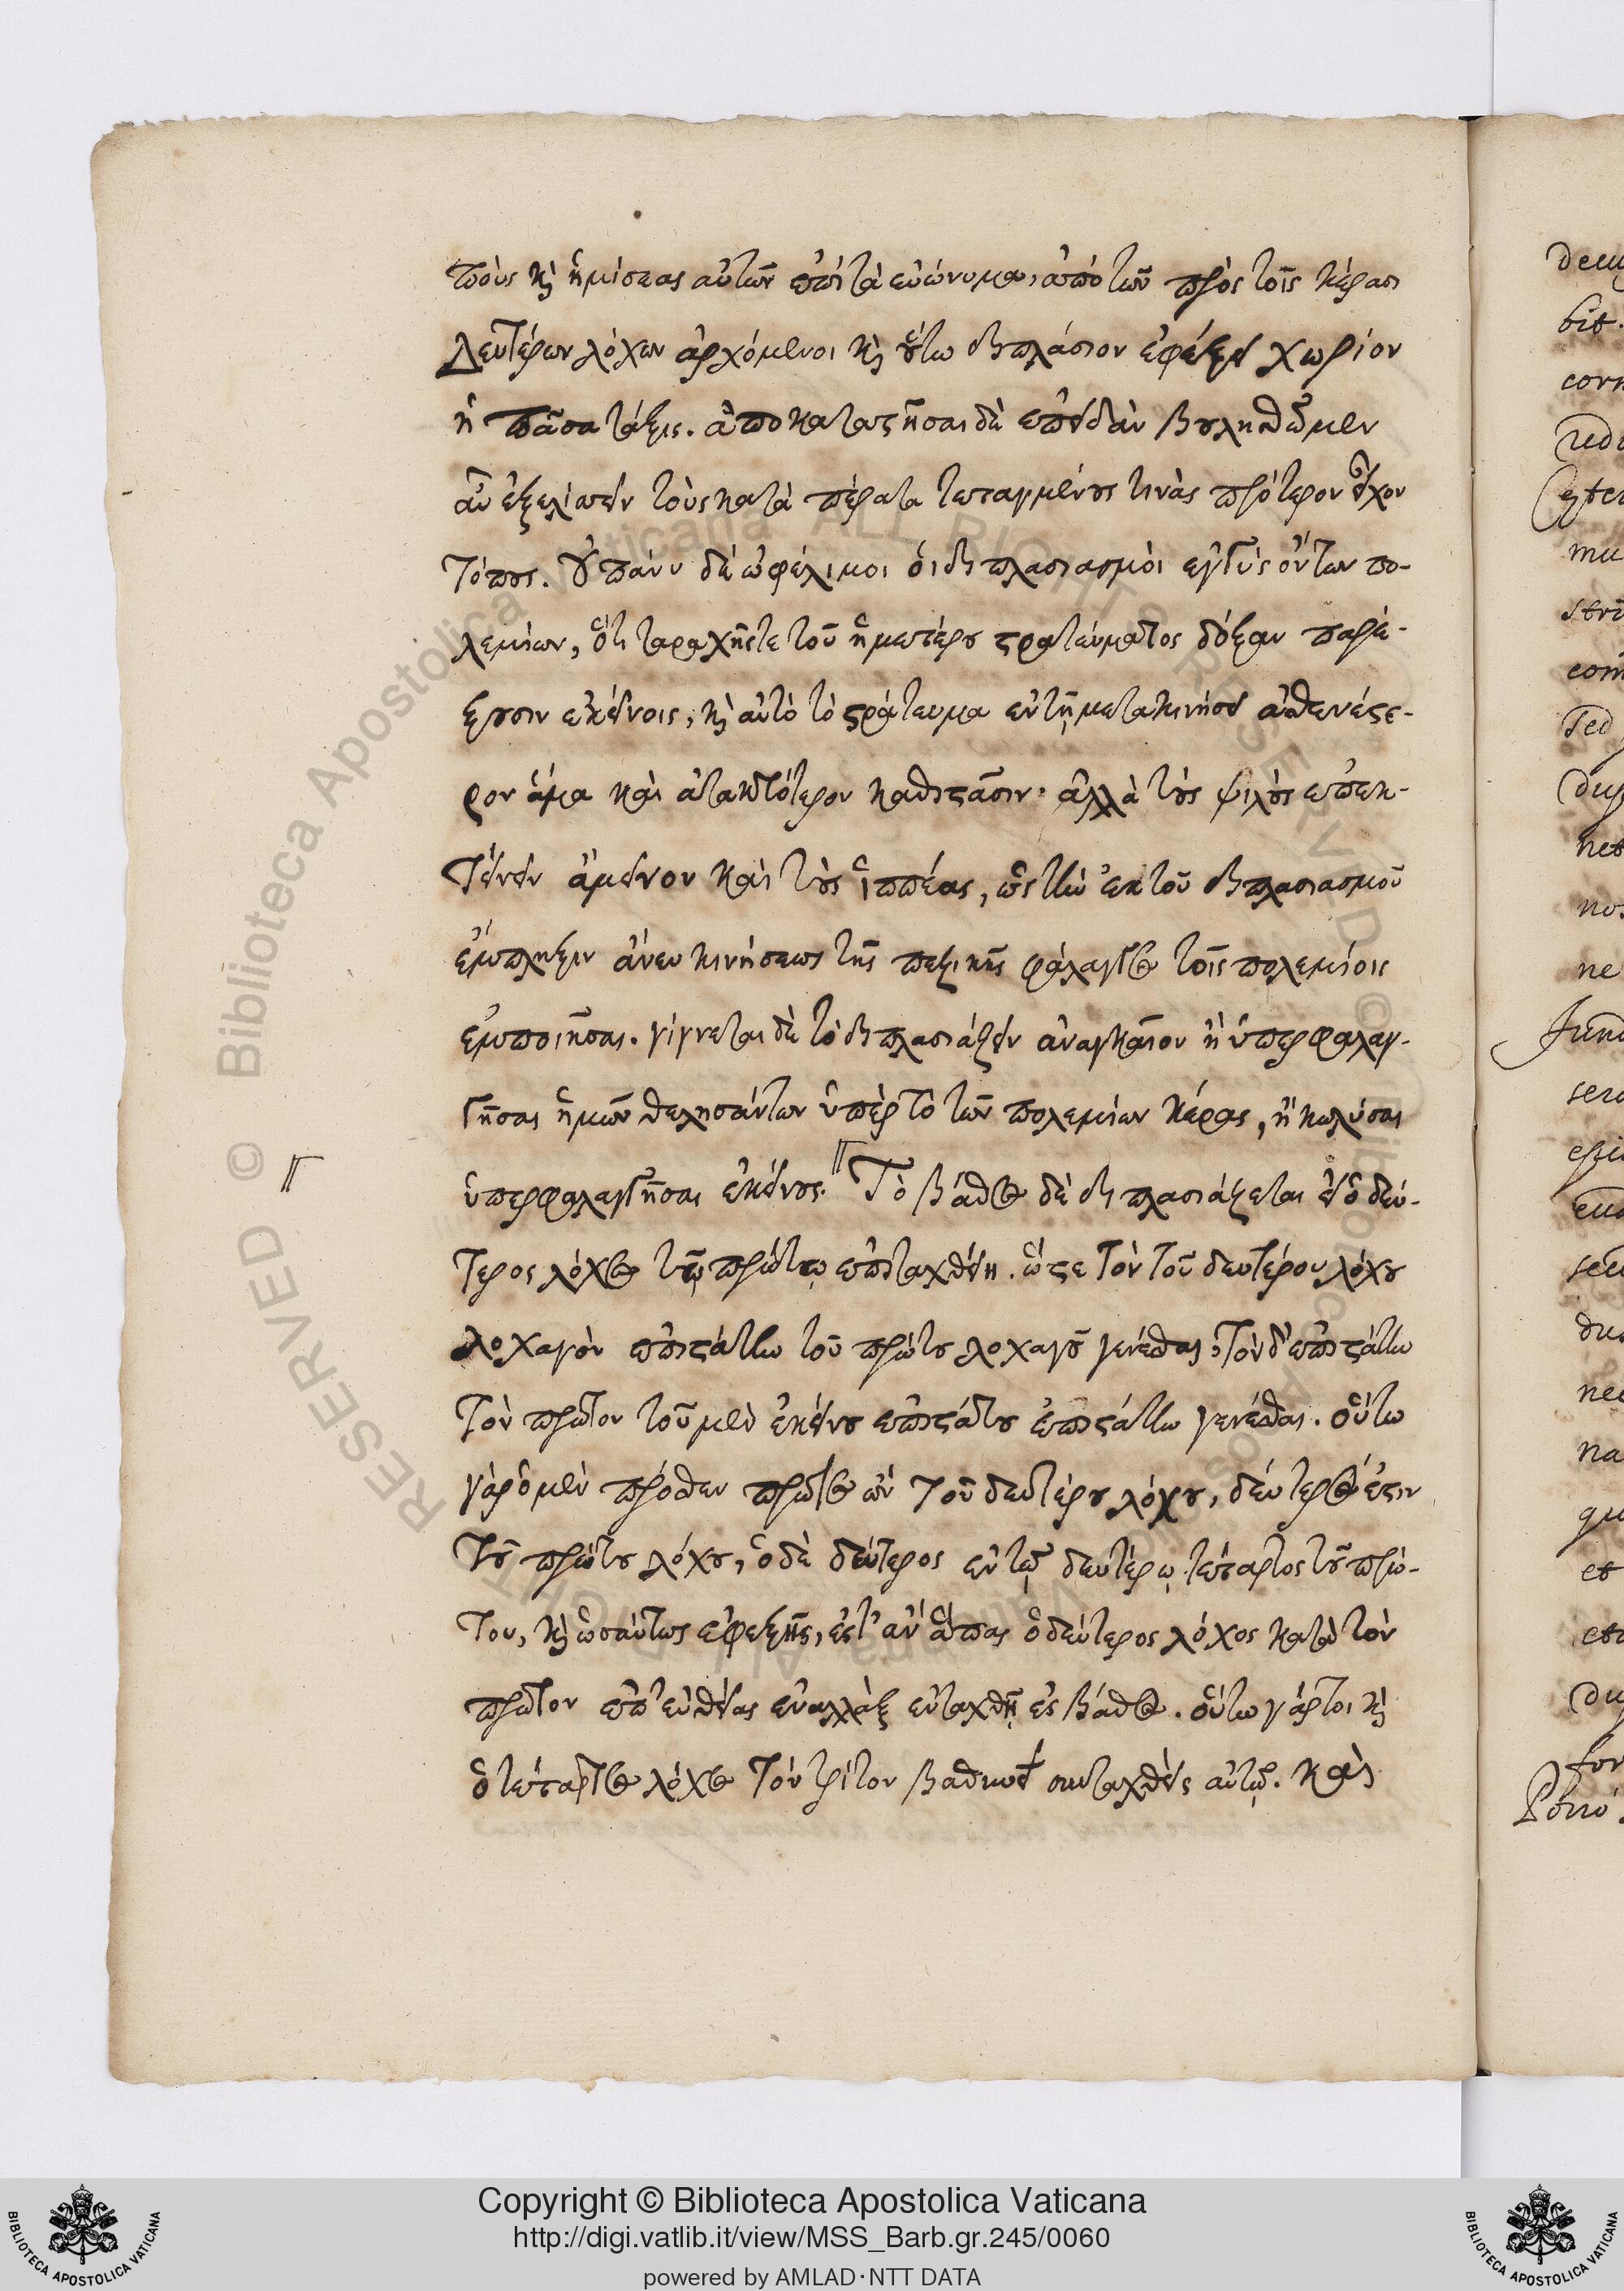 πους καὶ ἡμίσεας αὐτῶν ἐπὶ τὰ εὐώνυμα, ἀπὸ τῶν πρὸς τοῖς κέρασι
Δευτέρων λόχων ἀρχόμενοι καὶ οὕτω διπλάσιον ἐφέξει χωρίον
ἡ πᾶσα τάξις. ἀποκαταστῆσαι δὲ ἐπειδὰν βουληθῶμεν
αὖ ἐξελίπειν τοὺς κατὰ πέρατα τεταγμένους τινὰς πρότερον εἶχον
τόπους. Οὐ πάνυ δὲ ὠφέλιμοι ὁι διπλασιασμὸι ἐγγύς ὄντων πο-
λεμίων, ὅτι ταραχῆς τε τοῦ ἡμετέρου στρατεύματος δόξαν παρέ-
ξουσιν ἐκείνοις, καὶ αὐτὸ τὸ στράτευμα ἐν τῇ μετακινήσει ἀσθενέστε-
ρον ἅμα καὶ ἀτακτότερον καθιστᾶσιν· ἀλλὰ τοὺς ψιλοὺς ἐπεκ-
τείνειν ἄμεινον καὶ τοὺς ἱππέας, ὡς τὴν ἐκ τοῦ διπλασιασμοῦ
ἔμπληξιν ἄνευ κινήσεως τῆς πεζικῆς φάλαγγος τοῖς πολεμίοις
ἐμποιῆσαι. γίγνεται δὲ τὸ διπλασιάζειν ἀναγκαῖον ἢ ὑπερφαλαγ-
γῆσαι ἡμῶν θελησάντων ὑπὲρ τὸ τῶν πολεμίων κέρας, ἢ κωλύσαι
ὑπερφαλαγγῆσαι ἐκείνους. Τὸ βάθος δὲ διπλασιάζεται εἰ ὁ δεύ-
τερος λόχος τῷ πρώτῳ ἐπιταχθείη. ὥστε τὸν τοῦ δευτέρου λόχου
λοχαγὸν ἐπιστάτην τοῦ πρώτου λοχαγοῦ γενέσθαι, τὸν δ' ἐπιστάτην
τὸν πρῶτον τοῦ μὲν ἐκείνου ἐπιστάτου ἐπιστάτην γενέσθαι. οὕτω
γὰρ ὁ μὲν πρόσθεν πρῶτος ὢν τοῦ δευτέρου λόχου, δεύτερός ἐστιν
τοῦ πρώτου λόχου, ὁ δὲ δεύτερος ἐν τῷ δευτέρῳ τέταρτος τοῦ πρώ-
του, καὶ ὡσαύτως ἐφεξῆς, ἔστ' ἂν ἅπας ὁ δεύτερος λόχος κατὰ τὸν
πρῶτον ἐπ' εὐθείας ἐναλλὰξ ἐνταχθῇ ἐς βάθος. οὕτω γάρ τοι καὶ
ὁ τέταρτος λόχος τὸν τρίτον βαθυνεῖ συνταχθεὶς αὐτῷ. καὶ
Copyright © Biblioteca Apostolica Vaticana
http://digi.vatlib.it/view/MSS_Barb.gr.245/0060
powered by AMLAD·NTT DATA